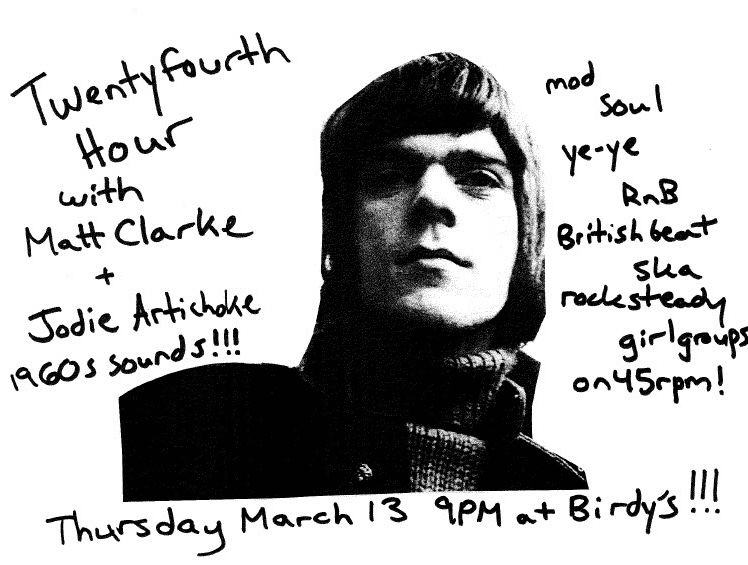 Twentyfourth
Hour
with
Matt Clarke
+
Jodie Artichoke
1960s sounds!!!
mod
soul
ye-ye
RnB
British beat
ska
rocksteady
girlgroups
on 45rpm!
Thursday March 13 9PM at Birdy's!!!